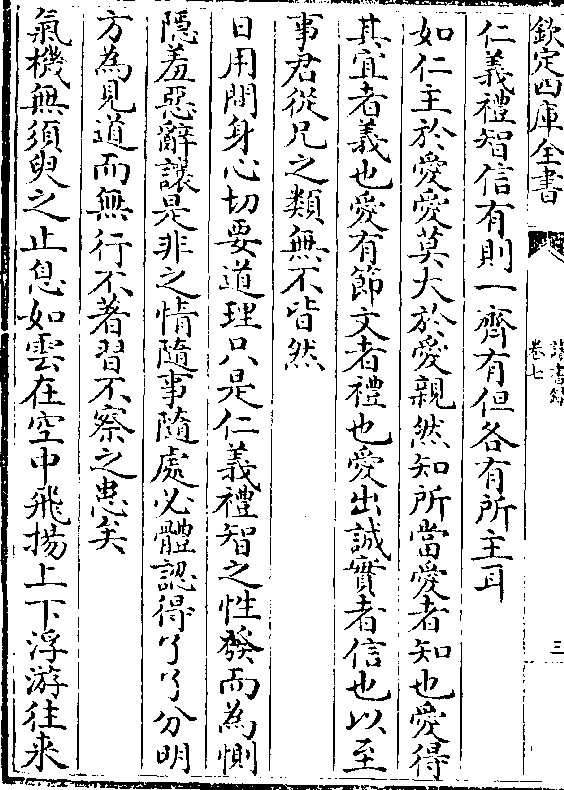 欽定四庫全書
讀書錄
卷七
三
仁義禮智信有則一齊有但各有所主耳
如仁主於愛愛莫大於愛親然知所當愛者知也愛得
其宜者義也愛有節文者禮也愛出誠實者信也以至
事君從兄之類無不皆然
日用間身心切要道理只是仁義禮智之性發而為惻
隱羞惡辭讓是非之情隨事隨處必體認得了了分明
方為見道而無行不著習不察之患矣
氣機無須臾之止息如雲在空中飛揚上下浮游往来